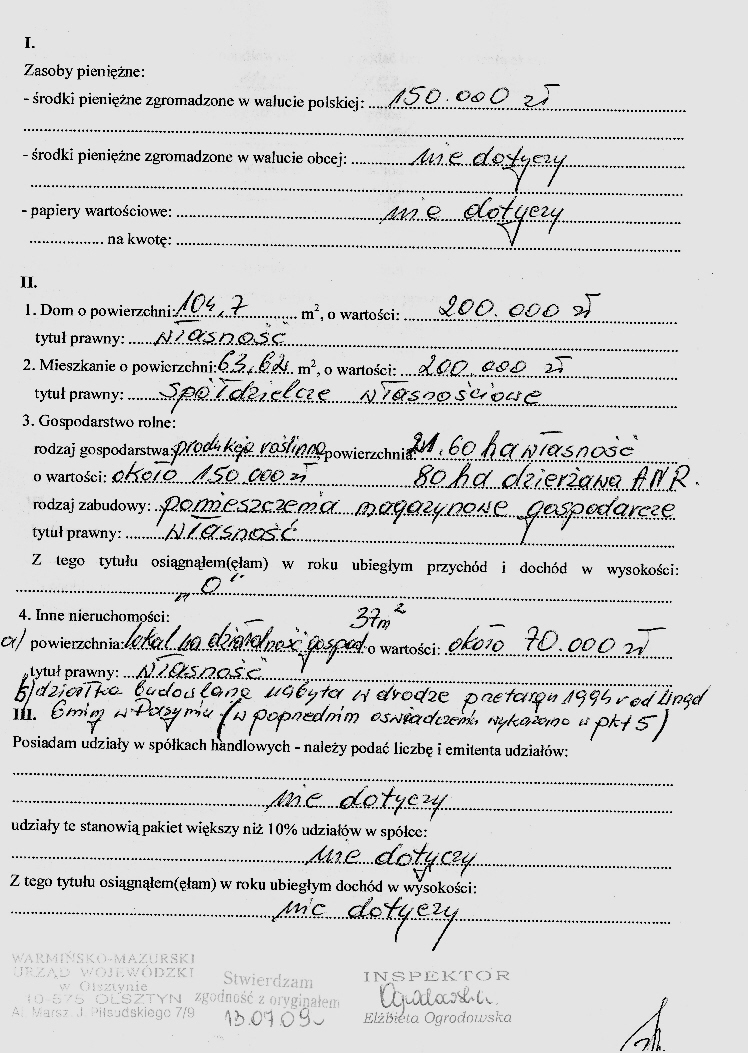 I.
Zasoby pieniężne:
- środki pieniężne zgromadzone w walucie polskiej: 150.000 zł
- środki pieniężne zgromadzone w walucie obcej: nie dotyczy
- papiery wartościowe: nie dotyczy
na kwotę:
II.
1. Dom o powierzchni: 104,7 m², o wartości: 200.000 zł
tytuł prawny: własność
2. Mieszkanie o powierzchni: 63,62 m², o wartości: 200.000 zł
tytuł prawny: Spółdzielcze własnościowe
3. Gospodarstwo rolne:
rodzaj gospodarstwa: produkcja roślinna powierzchnia: 21,60 ha własność
o wartości: około 150.000 zł 80 ha dzierżawa ANR.
rodzaj zabudowy: pomieszczenia magazynowe gospodarcze
tytuł prawny: własność
Z tego tytułu osiągnąłem(ęłam) w roku ubiegłym przychód i dochód w wysokości:
„0”
4. Inne nieruchomości: 37m²
a/ powierzchnia: lokal na działalność gospod. o wartości: około 70.000 zł
tytuł prawny: własność
b/ działka budowlana nabyta w drodze przetargu 1994 r od Urzęd
III. Gminy w (w poprzednim oświadczeniu wykazano w pkt 5)
Posiadam udziały w spółkach handlowych - należy podać liczbę i emitenta udziałów:
nie dotyczy
udziały te stanowią pakiet większy niż 10% udziałów w spółce:
nie dotyczy
Z tego tytułu osiągnąłem(ęłam) w roku ubiegłym dochód w wysokości:
nie dotyczy
WARMIŃSKO-MAZURSKI
URZĄD WOJEWÓDZKI
w Olsztynie
10-575 OLSZTYN
Al. Marsz. J. Piłsudskiego 7/9
Stwierdzam
zgodność z oryginałem
13.07.09
INSPEKTOR
Elżbieta Ogrodowska